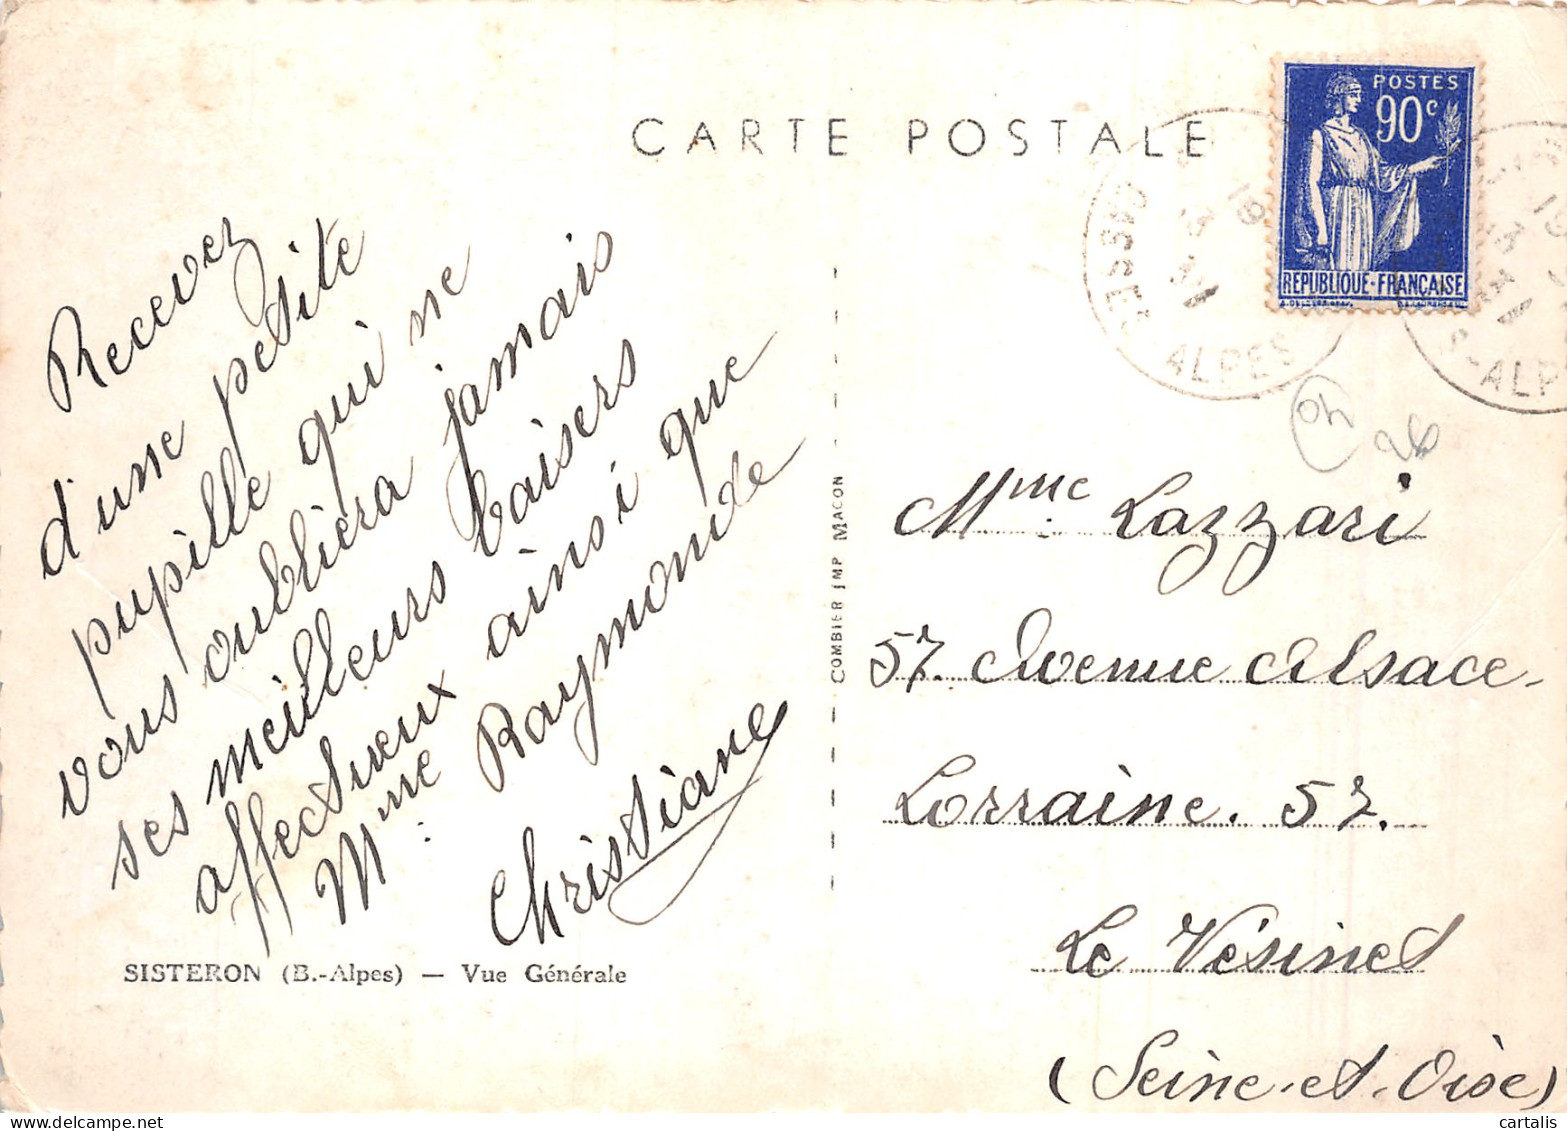 CARTE POSTALE
POSTES
90c
REPUBLIQUE-FRANÇAISE
BASSES
ALPES
S-ALP
Recevez
d'une petite
pupille qui ne
vous oubliera jamais
ses meilleurs baisers
affectueux ainsi que
Mme Raymonde
Christiane
SISTERON (B.-Alpes) — Vue Générale
COMBIER IMP MACON
Mme Lazzari
57. Avenue Alsace-
Lorraine. 57.
Le Vésinet
(Seine-et-Oise)
cartalis